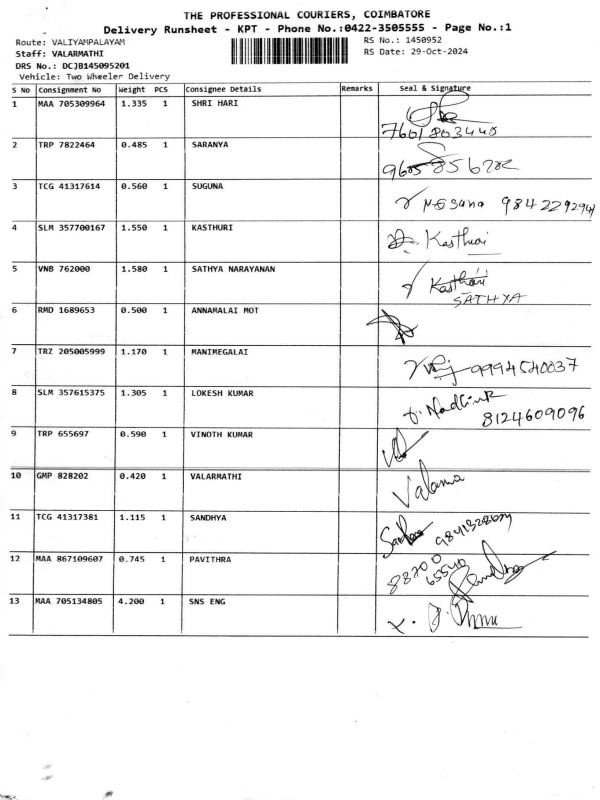 THE PROFESSIONAL COURIERS, COIMBATORE
Delivery Runsheet - KPT - Phone No.:0422-3505555 - Page No.:1
Route: VALIYAMPALAYAM RS No.: 1450952
Staff: VALARMATHI RS Date: 29-Oct-2024
DRS No.: DCJB145095201
Vehicle: Two Wheeler Delivery
S No Consignment No Weight PCS Consignee Details Remarks Seal & Signature
1 MAA 705309964 1.335 1 SHRI HARI
7601803440
2 TRP 7822464 0.485 1 SARANYA
3 TCG 41317614 0.560 1 SUGUNA
4 SLM 357700167 1.550 1 KASTHURI Kasthuri
5 VNB 762000 1.580 1 SATHYA NARAYANAN Kasthuri
SATHYA
6 RMD 1689653 0.500 1 ANNAMALAI MOT
7 TRZ 205005999 1.170 1 MANIMEGALAI 9994540037
8 SLM 357615375 1.305 1 LOKESH KUMAR
8124609096
9 TRP 655697 0.590 1 VINOTH KUMAR
10 GMP 828202 0.420 1 VALARMATHI
11 TCG 41317381 1.115 1 SANDHYA
12 MAA 867109607 0.745 1 PAVITHRA 88700
65540
13 MAA 705134805 4.200 1 SNS ENG